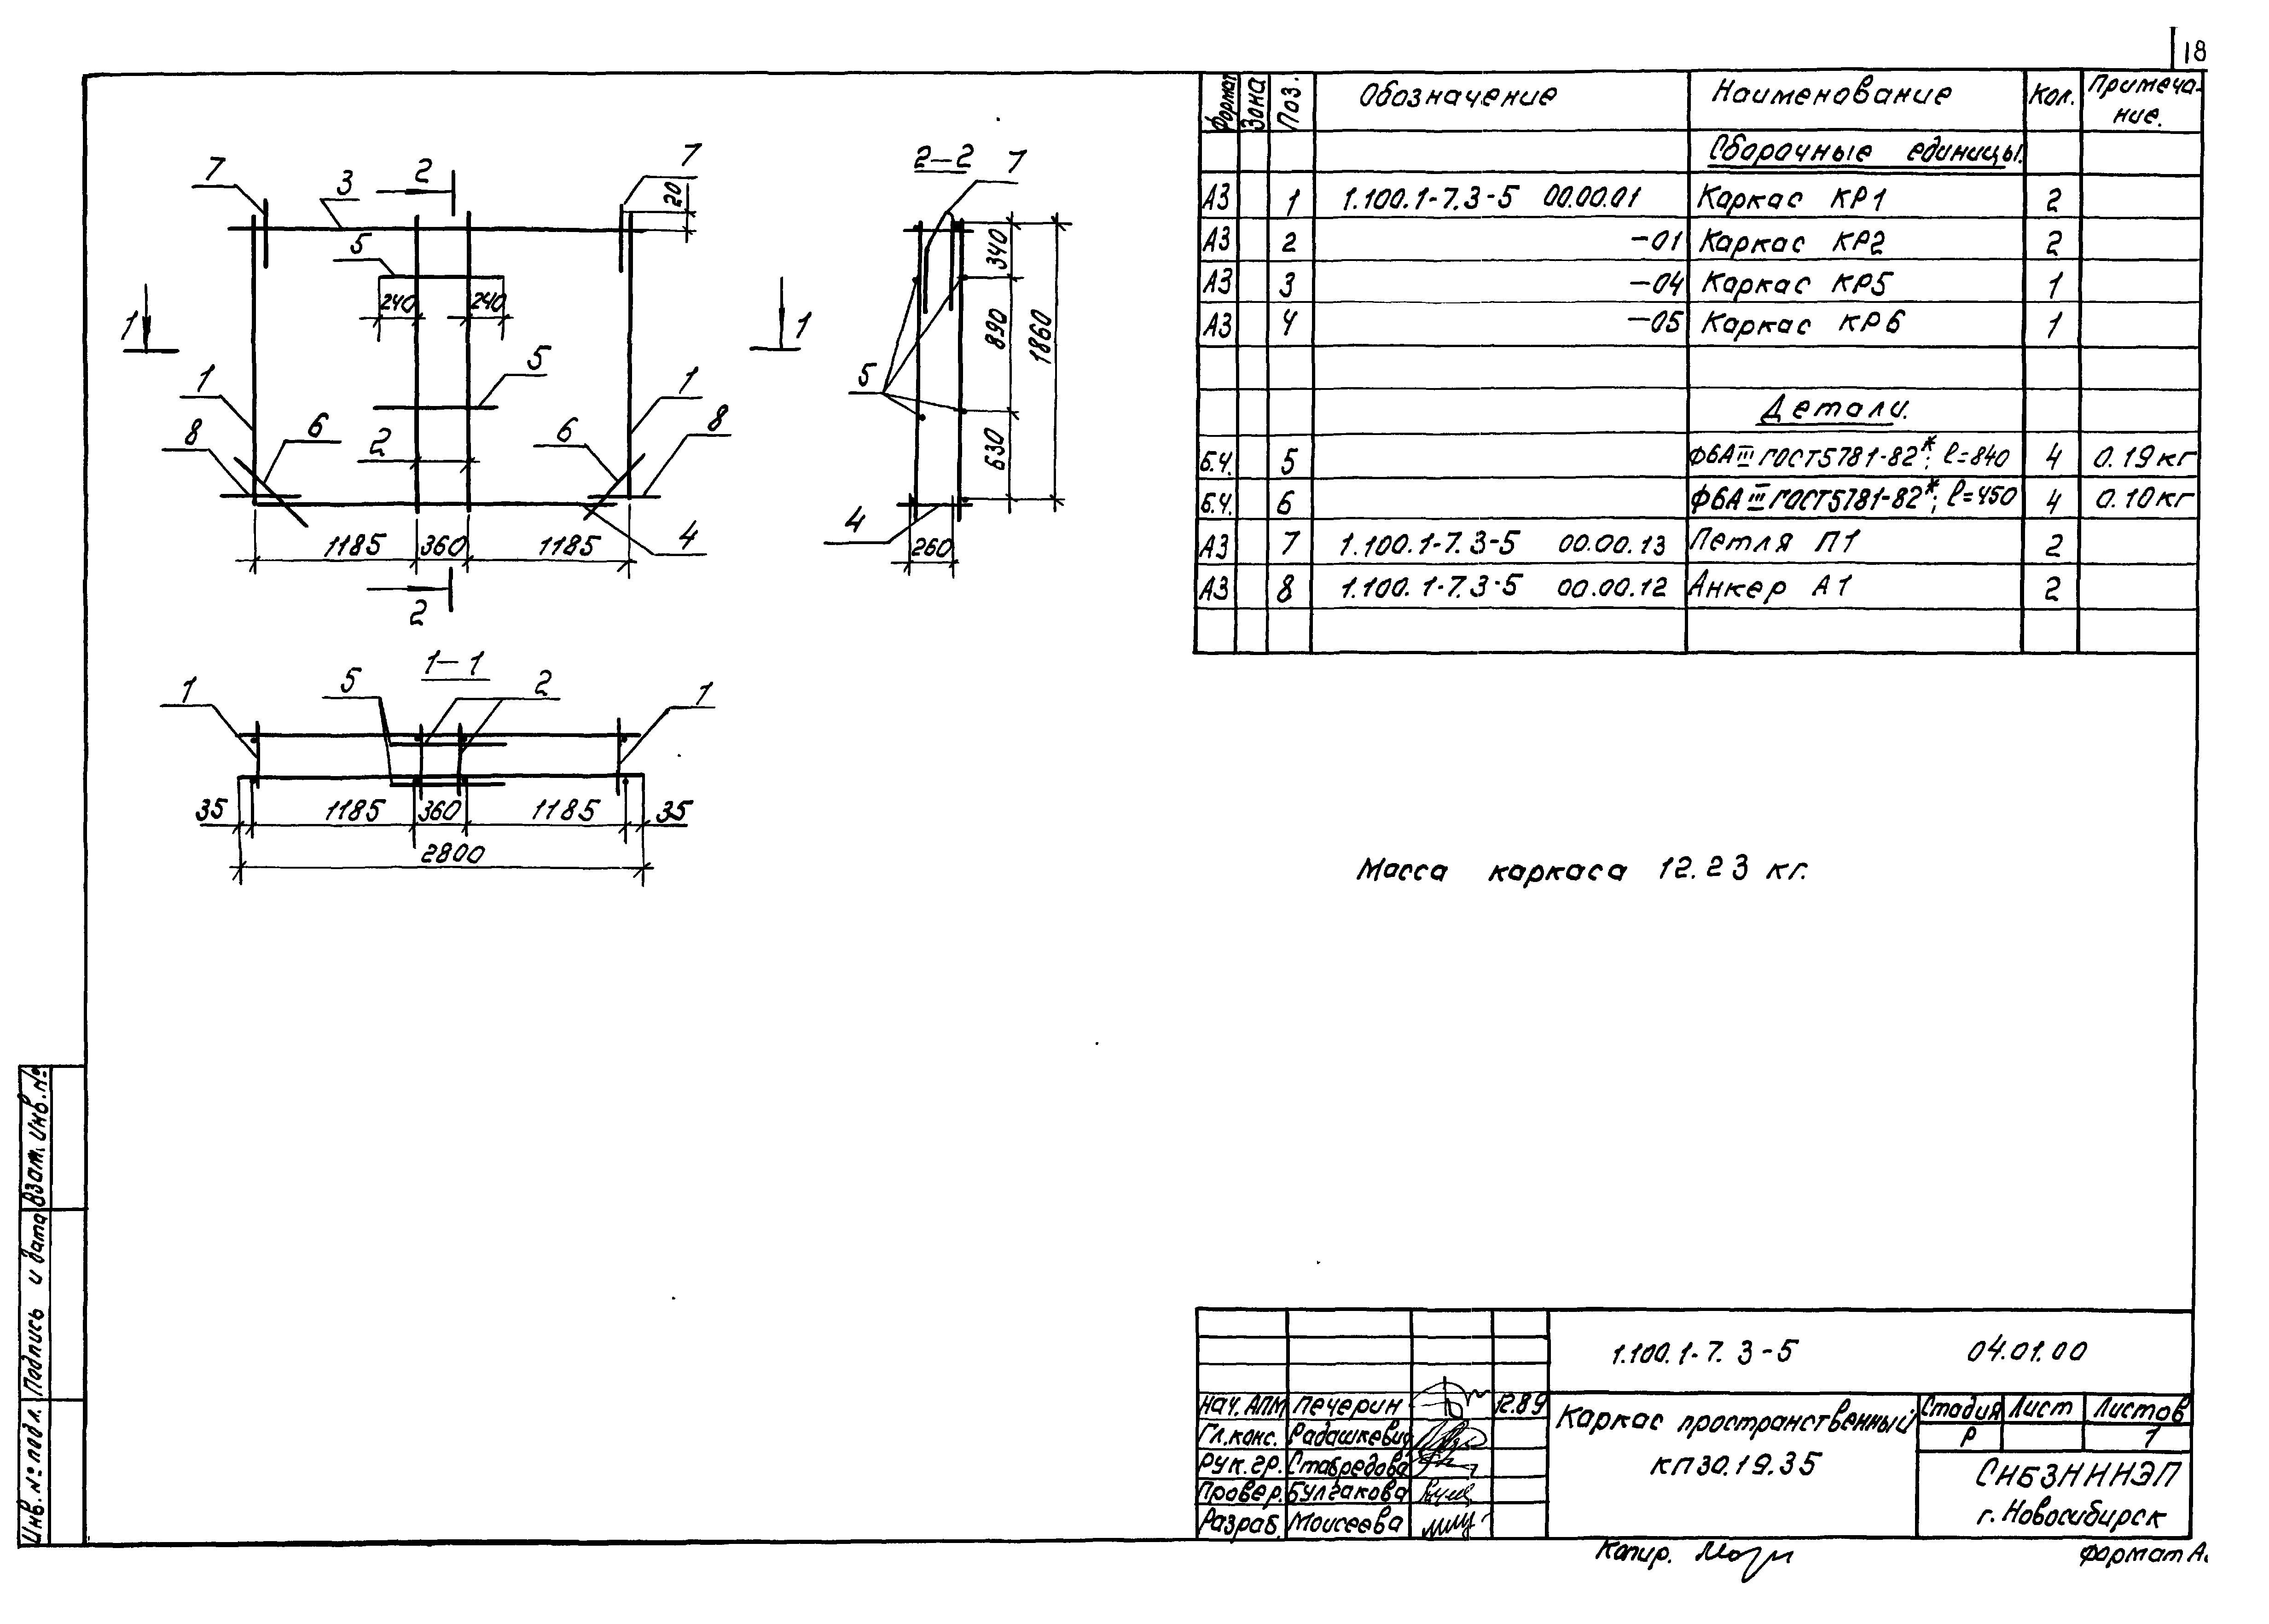 18
Формат Зона Поз. Обозначение Наименование Кол. Примеча-
ние.
Сборочные единицы.
А3 1 1.100.1-7.3-5 00.00.01 Каркас КР1 2
А3 2 -01 Каркас КР2 2
А3 3 -04 Каркас КР5 1
А3 4 -05 Каркас КР6 1
Детали.
Б.Ч. 5 Ф6АIII ГОСТ5781-82*; ℓ=840 4 0.19кг
Б.Ч. 6 Ф6АIII ГОСТ5781-82*; ℓ=450 4 0.10кг
А3 7 1.100.1-7.3-5 00.00.13 Петля П1 2
А3 8 1.100.1-7.3-5 00.00.12 Анкер А1 2
7 3 2 7
20
5
240 240
1 1
5
1 1
8 6 2 6 8
1185 360 1185 4
2
2-2 7
340
890
1860
5
630
4
260
1-1
1 5 2 1
35 1185 360 1185 35
2800
Масса каркаса 12.23 кг.
1.100.1-7.3-5 04.01.00
Нач. АПМ Печерин 12.89
Гл.конс. Радашкевич
Рук.гр. Ставредова
Провер. Булгакова
Разраб. Моисеева
Каркас пространственный
КП30.19.35
Стадия Лист Листов
Р 1
СНБЗНННЭП
г. Новосибирск
Копир.
Формат А
Инв.№ подл. Подпись и дата Взам. Инв.№